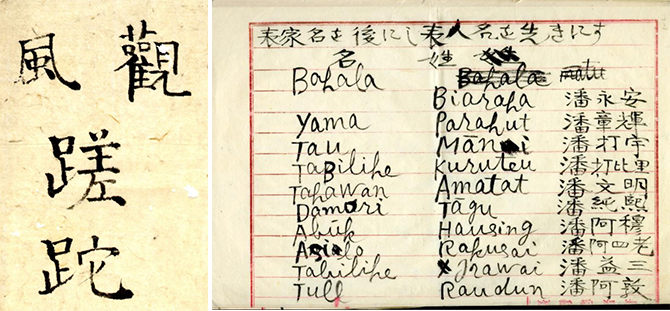 觀風
蹉
跎
表家名を後にし表人名を先きにす
名 姓
Bahala
Biaraha 潘永安
Yama Parahut 潘章輝
Tau 潘打宇
Tabilihe Kuruteu 潘打比里
Tahawan Amatat 潘文明
Damori Tagu 潘純熙
Abuk Hausing 潘阿穆
Rakusai 潘阿四老
Tabilihe Jrawai 潘益三
Tull Raudun 潘阿敦